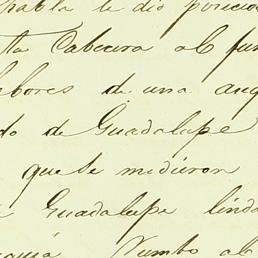 habla le dio posicion
ta Cabecera al fun
labores de una ang
do de Guadalupe
que se midieron
Guadalupe linda
Rumbo al